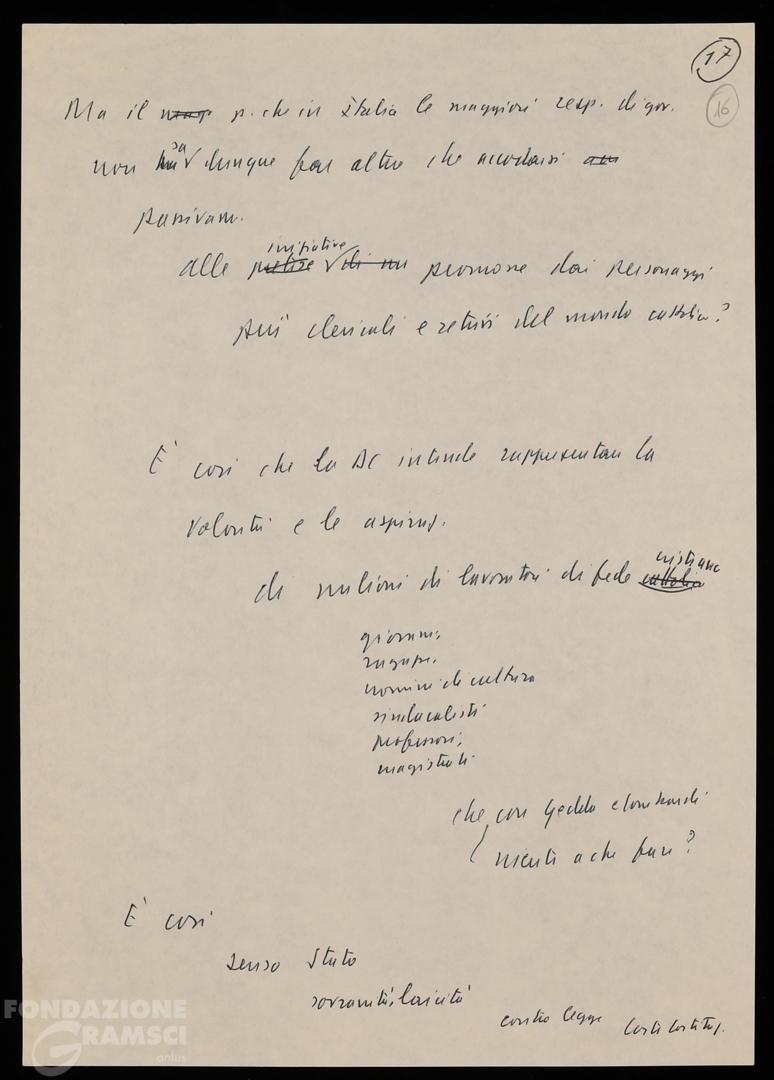 17
16
Ma il p. che in Italia le maggiori resp. di gov.
non sa dunque fare altro che accodarsi
passivam.
iniziative
alle promosse dai personaggi
più clericali e retrivi del mondo cattolico?
È così che la DC intende rappresentare la
volontà e le aspiraz.
cristiana
di milioni di lavoratori di fede cattolica
giovani,
ragazze,
uomini di cultura
sindacalisti
professori,
magistrati
che con Gedda e Lombardi
niente a che fare?
È così
senso Stato
sovranità, laicità
contro legge Corte Costituz.
FONDAZIONE
GRAMSCI
onlus